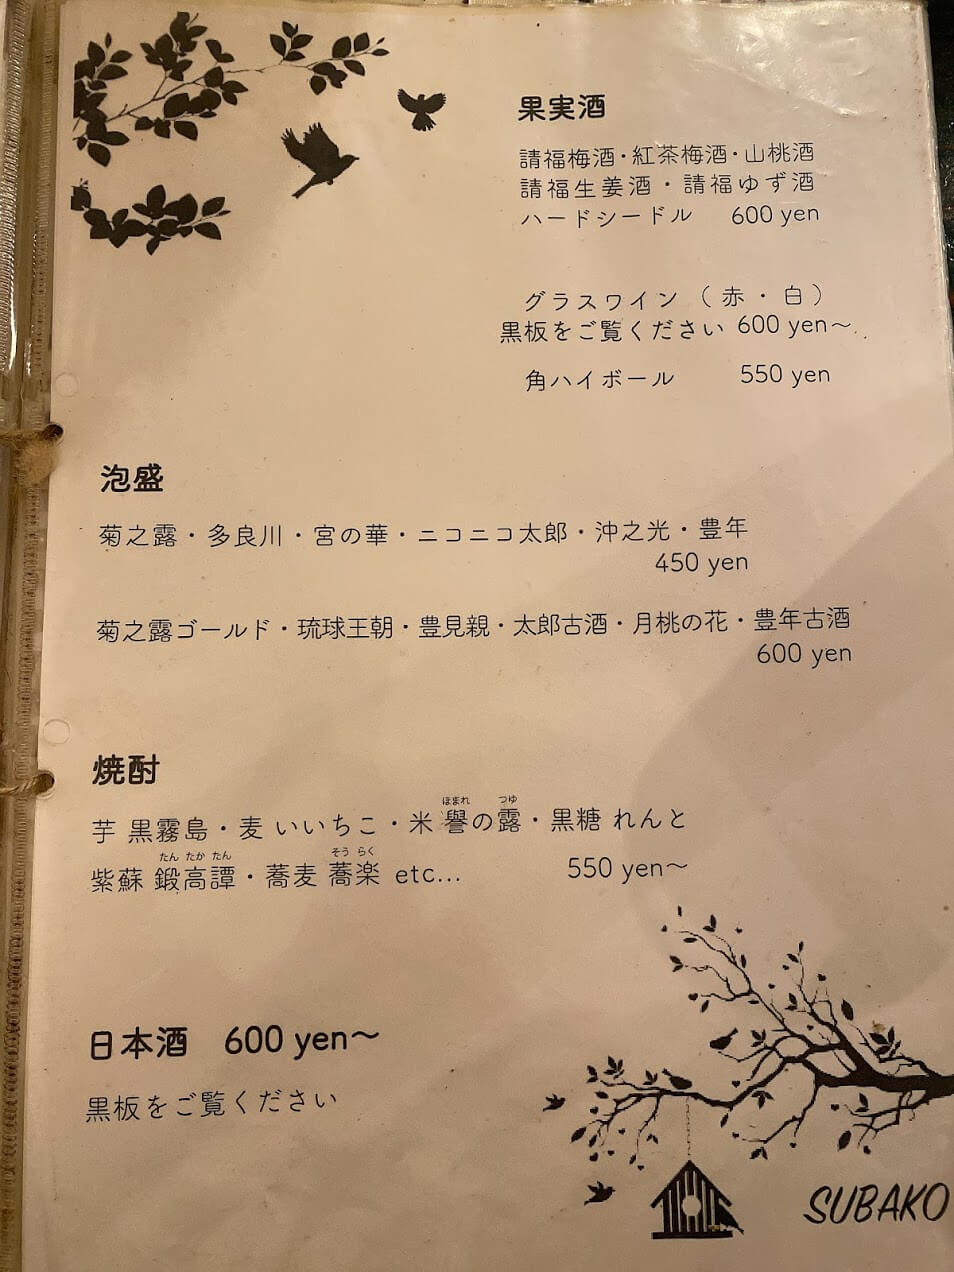 果実酒
請福梅酒・紅茶梅酒・山桃酒
請福生姜酒・請福ゆず酒
ハードシードル 600 yen
グラスワイン（赤・白）
黒板をご覧ください 600 yen～
角ハイボール 550 yen
泡盛
菊之露・多良川・宮の華・ニコニコ太郎・沖之光・豊年
450 yen
菊之露ゴールド・琉球王朝・豊見親・太郎古酒・月桃の花・豊年古酒
600 yen
焼酎
ほまれ つゆ
芋 黒霧島・麦 いいちこ・米 譽の露・黒糖 れんと
たん たか たん そう らく
紫蘇 鍛高譚・蕎麦 蕎楽 etc... 550 yen～
日本酒 600 yen～
黒板をご覧ください
SUBAKO